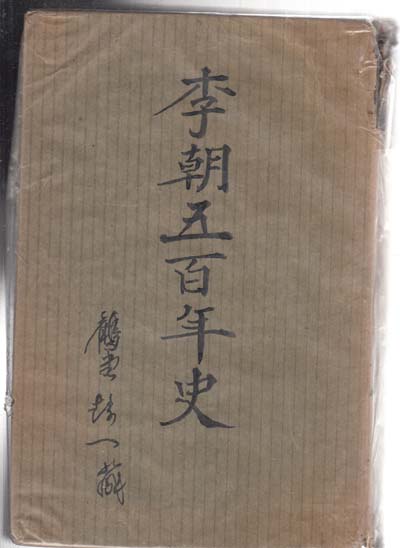 李朝五百年史
一藏